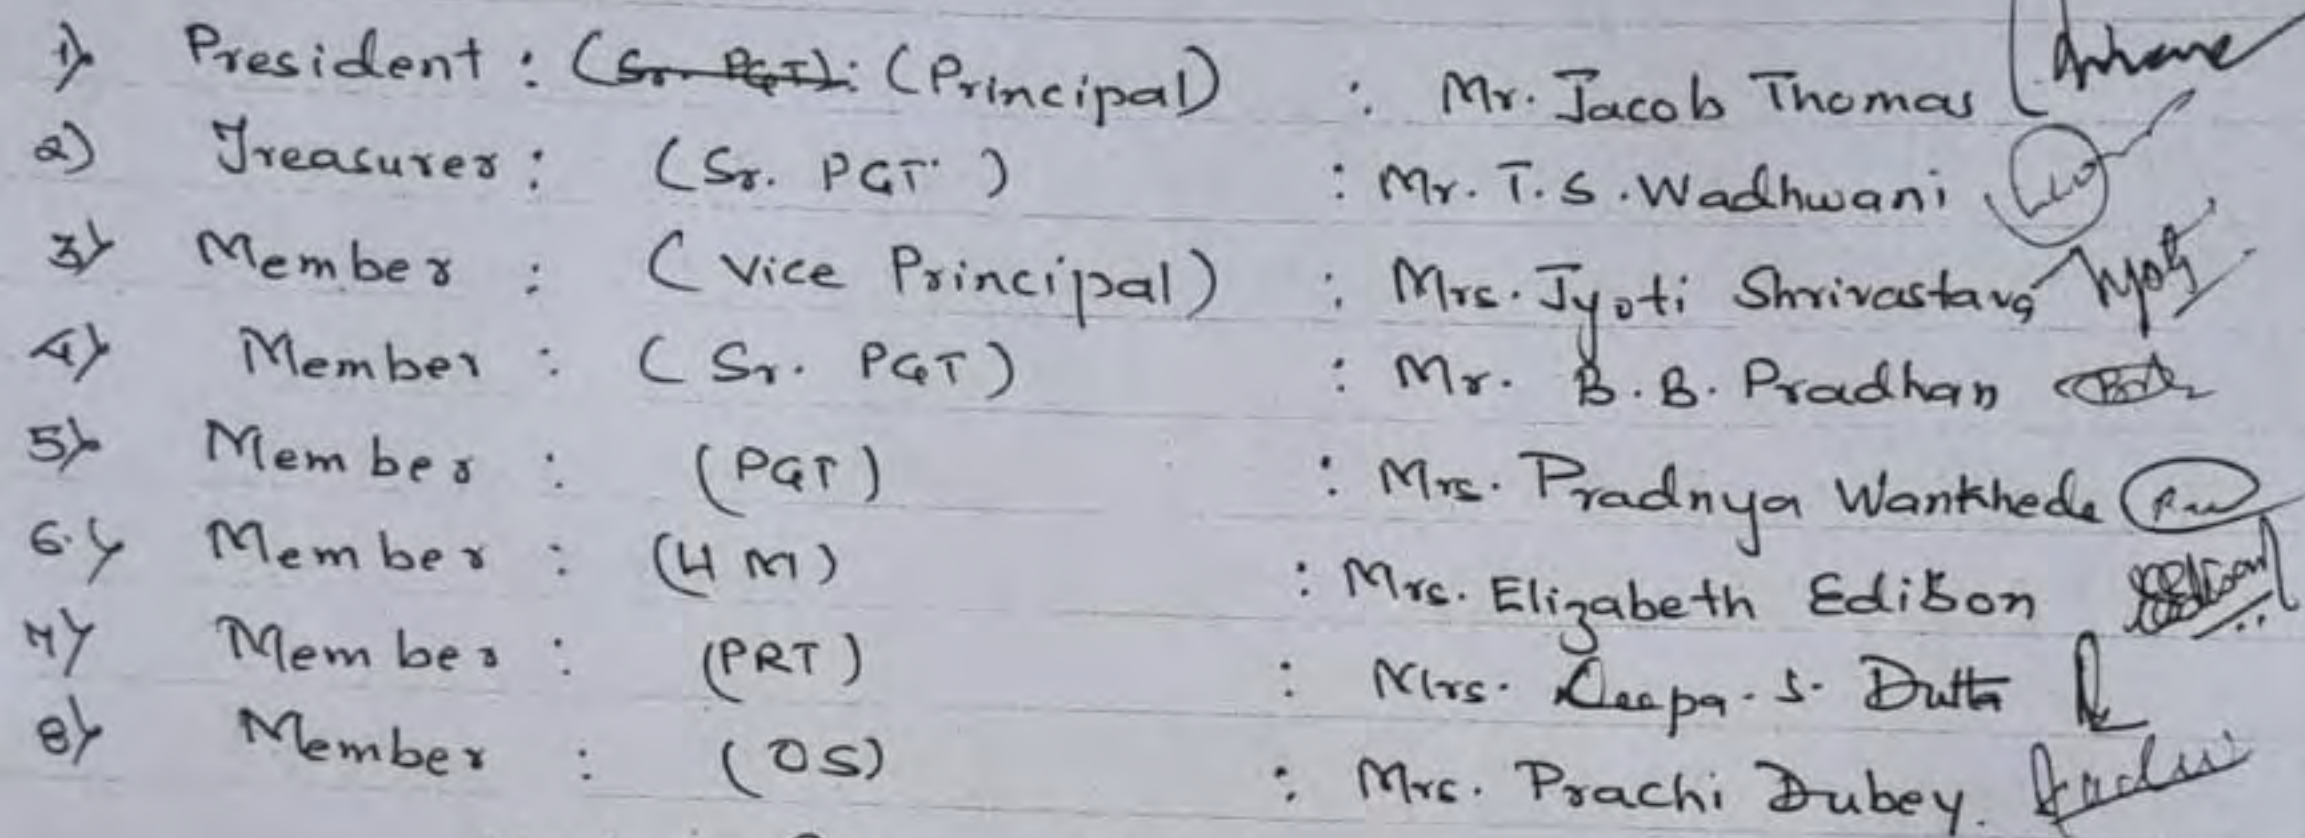 1) President : (Sr. PGT): (Principal) : Mr. Jacob Thomas
2) Treasurer : (Sr. PGT) : Mr. T.S. Wadhwani
3) Member : (Vice Principal) : Mrs. Jyoti Shrivastava Jyoti
4) Member : (Sr. PGT) : Mr. B.B. Pradhan
5) Member : (PGT) : Mrs. Pradnya Wankhede
6.) Member : (HM) : Mrs. Elizabeth Edison
7) Member : (PRT) : Mrs. Deepa. S. Dutta
8) Member : (OS) : Mrs. Prachi Dubey.